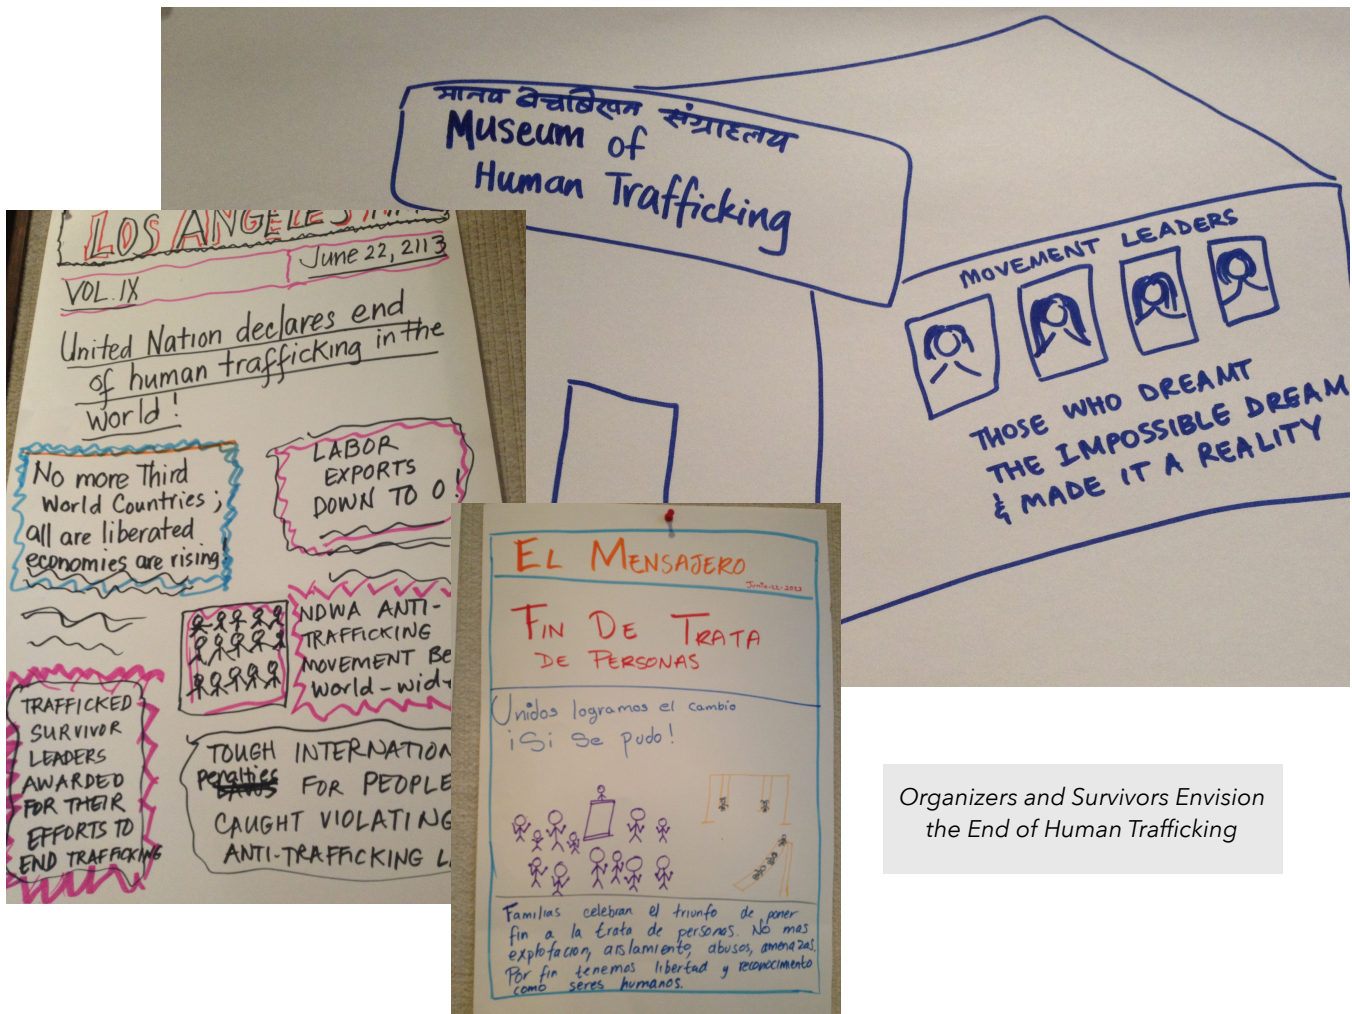 मानव बेचबिखन संग्राहलय
Museum of
Human Trafficking
MOVEMENT LEADERS
THOSE WHO DREAMT
THE IMPOSSIBLE DREAM
& MADE IT A REALITY
LOS ANGELES
VOL. IX
June 22, 2113
United Nation declares end
of human trafficking in the
world!
No more Third
World Countries;
all are liberated
economies are rising!
LABOR
EXPORTS
DOWN TO 0!
NDWA ANTI-
TRAFFICKING
MOVEMENT BE
World-wid
TRAFFICKED
SURVIVOR
LEADERS
AWARDED
FOR THEIR
EFFORTS TO
END TRAFFICKING
TOUGH INTERNATION
Penalties FOR PEOPLE
CAUGHT VIOLATING
ANTI-TRAFFICKING L
EL MENSAJERO
FIN DE TRATA
DE PERSONAS
Unidos logramos el cambio
¡Si Se pudo!
Familias celebran el triunfo de poner
fin a la trata de personas. No mas
explotacion, aislamiento, abusos, amenazas.
Por fin tenemos libertad y reconocimiento
como seres humanos.
Organizers and Survivors Envision
the End of Human Trafficking